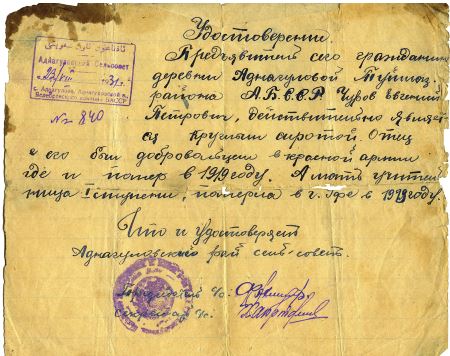 Удостоверение
Аднагуловский Сельсовет
№ 840
Предъявитель сего гражданин
деревни Аднагуловой Туймаз.
района А.Б.С.С.Р. Чуров Евгений
Петрович, действительно являет
ся круглым сиротой. Отец
его был добровольцем в красной армии
где и помер в 1919 году. А мать учитель
ница I ступени, померла в г. Уфе в году.
Что и удостоверяет
Аднагуловский сель-совет.
Председатель с/с.
Секретарь с/с.